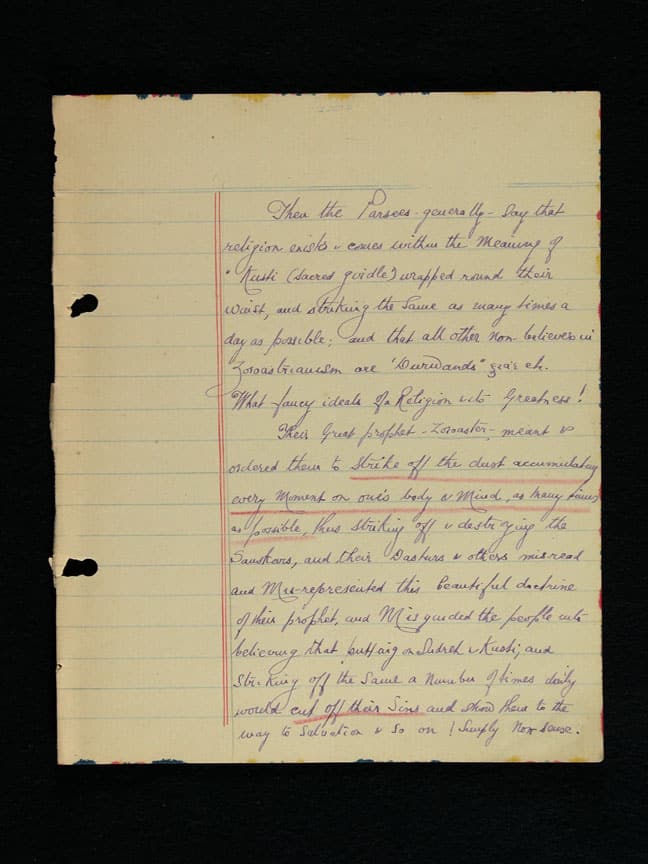 Then the Parsees - generally - say that
religion exists & comes within the Meaning of
"Kusti (sacred girdle") wrapped round their
waist, and striking the same as many times a
day as possible; and that all other non-believers in
Zoroastrianism are "Durwands" etc.
What fancy ideals of a Religion & its Greatness!
Their Great prophet - Zoroaster -, meant &
ordered them to strike off the dust accumulating
every Moment on one's body & Mind, as many times
as possible, thus striking off & destroying the
Sanskars, and their Dasturs & others mis-read
and Mis-represented this beautiful doctrine
of their prophet, and Misguided the people into
believing that putting on Sudreh & Kusti; and
Striking off the same a Number of times daily
would cut off their Sins and show them to the
way to Salvation & so on! Simply Non sense.